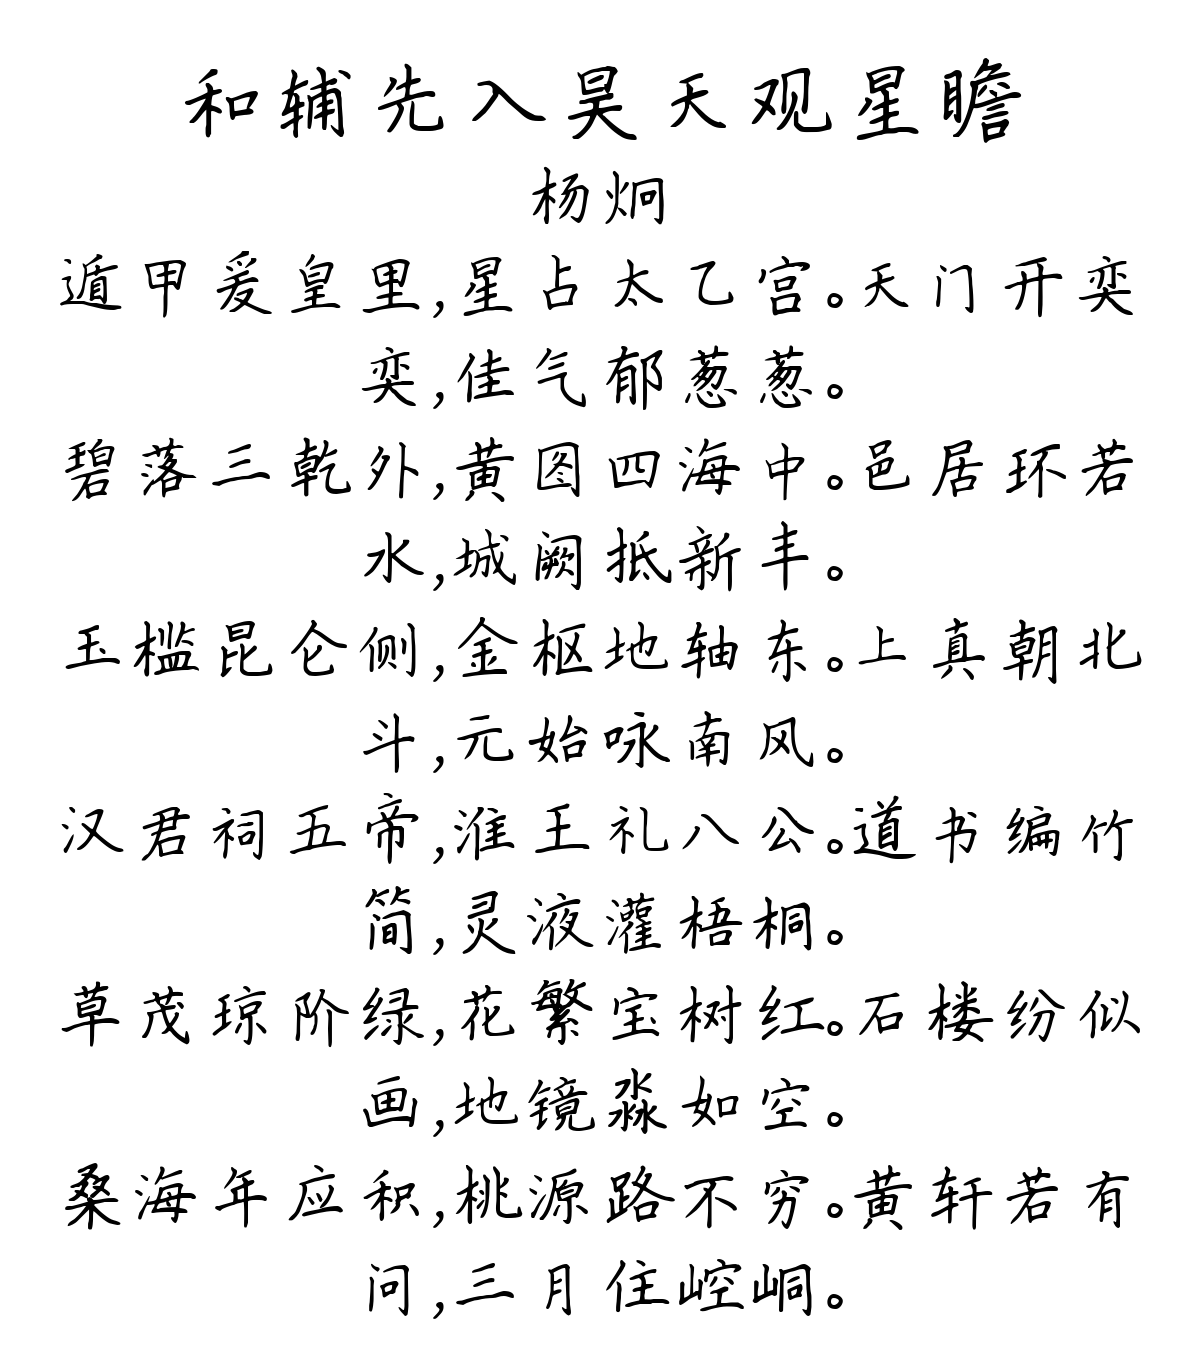 和辅先入昊天观星瞻
杨炯
遁甲爰皇里,星占太乙宫。天门开奕
奕,佳气郁葱葱。
碧落三乾外,黄图四海中。邑居环若
水,城阙抵新丰。
玉槛昆仑侧,金枢地轴东。上真朝北
斗,元始咏南风。
汉君祠五帝,淮王礼八公。道书编竹
简,灵液灌梧桐。
草茂琼阶绿,花繁宝树红。石楼纷似
画,地镜淼如空。
桑海年应积,桃源路不穷。黄轩若有
问,三月住崆峒。